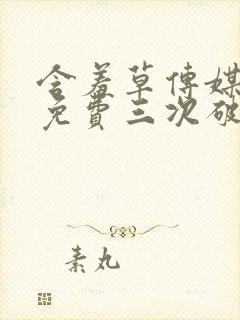 含羞草傳媒
免費三次破
素丸